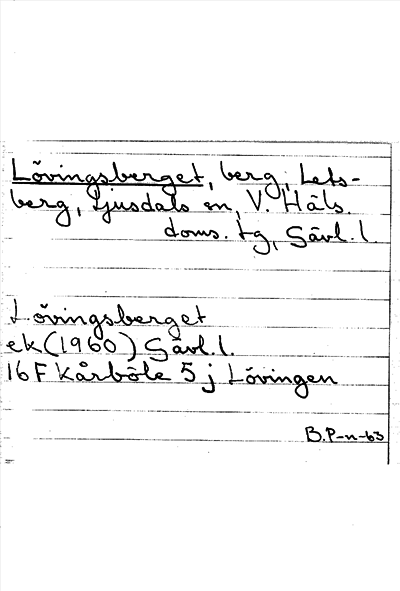 Lövingsberget, berg, Lets-
berg, Ljusdals sn, V. Häls.
doms. tg, Gävl. l.
Lövingsberget
ek (1960) Gävl. l.
16F Kårböle 5 j Lövingen
B.P-n-63